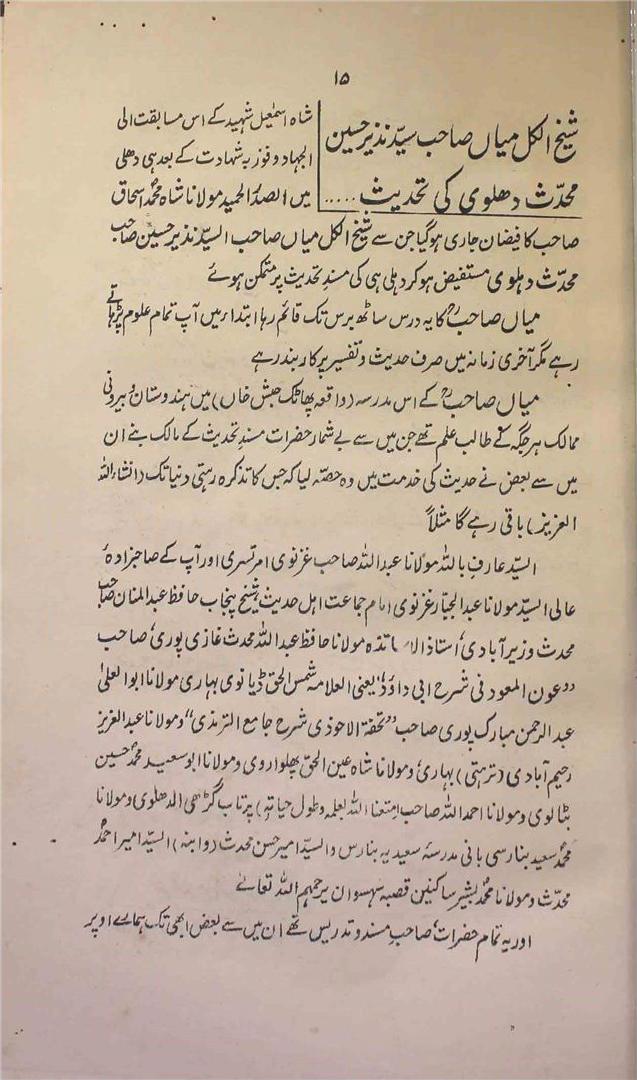 ۱۵
شیخ الکل میاں صاحب سیّد نذیر حسین
محدّث دھلوی کی تحدیث .....
شاہ اسمٰعیل شہید کے اس مسابقت الی
الجہاد و فوز بہ شہادت کے بعد ہی دھلی
میں الصدر الحمید مولانا شاہ محمد اسحاق
صاحب کا فیضان جاری ہو گیا جن سے شیخ الکل میاں صاحب السیّد نذیر حسین صاحب
محدّث دہلوی مستفیض ہو کر دہلی ہی کی مسندِ تحدیث پر متمکن ہوئے
میاں صاحبؒ کا یہ درس ساٹھ برس تک قائم رہا ابتداء میں آپ تمام علوم پڑھاتے
رہے مگر آخری زمانہ میں صرف حدیث و تفسیر پر کاربند رہے
میاں صاحبؒ کے اس مدرسہ (واقعہ پھاٹک حبش خاں) میں ہندوستان و بیرونی
ممالک ہر جگہ کے طالب علم تھے جن میں سے بے شمار حضرات مسندِ تحدیث کے مالک بنے ان
میں سے بعض نے حدیث کی خدمت میں وہ حصّہ لیا کہ جس کا تذکرہ رہتی دنیا تک (انشاءاللہ
العزیز) باقی رہے گا مثلاً
السیّد عارف باللہ مولانا عبداللہ صاحب غزنوی امرتسری اور آپ کے صاحبزادہ
عالی السیّد مولانا عبدالجبّار غزنوی امام جماعت اہل حدیث، شیخ پنجاب حافظ عبدالمنان صاحب
محدث وزیرآبادی، استاذ الاساتذہ مولانا حافظ عبداللہ محدث غازی پوری، صاحب
"عون المعبود فی شرح ابی داؤد" یعنی العلامہ شمس الحق ڈیانوی بہاری مولانا ابوالعلیٰ
عبدالرحمٰن مبارک پوری صاحب "تحفۃ الاحوذی شرح جامع الترمذی" ومولانا عبدالعزیز
رحیم آبادی (ترہتی) بہاری ومولانا شاہ عین الحق پھلواروی ومولانا ابوسعید محمد حسین
بٹالوی ومولانا احمداللہ صاحب (متعنا اللہ بعلمہ وطول حیاتہ) پرتاب گڑھی الدھلوی ومولانا
محمد سعید بنارسی بانی مدرسہ سعیدیہ بنارس والسیّد امیر حسن محدث (وابنہ) السیّد امیر احمد
محدّث ومولانا محمد بشیر ساکنین قصبہ سہسوان یرحمہم اللہ تعالےٰ
اور یہ تمام حضرات، صاحبِ مسند و تدریس تھے ان میں سے بعض ابھی تک ہمارے اوپر